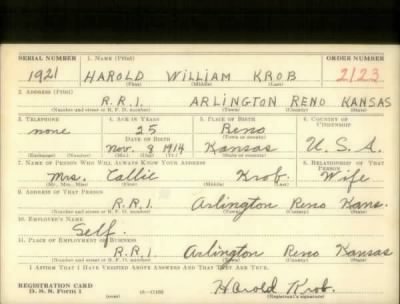 SERIAL NUMBER 1. NAME (Print) ORDER NUMBER
1921 HAROLD WILLIAM KROB 2123
(First) (Middle) (Last)
2. ADDRESS (Print)
R.R.1. ARLINGTON RENO KANSAS
(Number and street or R. F. D. number) (Town) (County) (State)
3. TELEPHONE 4. AGE IN YEARS 5. PLACE OF BIRTH 6. COUNTRY OF CITIZENSHIP
none 25 Reno
DATE OF BIRTH (Town or county)
Nov. 8 1914 Kansas U.S.A.
(Exchange) (Number) (Mo.) (Day) (Yr.) (State or country)
7. NAME OF PERSON WHO WILL ALWAYS KNOW YOUR ADDRESS 8. RELATIONSHIP OF THAT PERSON
Mrs. Callie Krob. Wife
(Mr., Mrs., Miss) (First) (Middle) (Last)
9. ADDRESS OF THAT PERSON
R.R.1. Arlington Reno Kans.
(Number and street or R. F. D. number) (Town) (County) (State)
10. EMPLOYER'S NAME
Self.
11. PLACE OF EMPLOYMENT OR BUSINESS
R.R.1. Arlington Reno Kansas
(Number and street or R. F. D. number) (Town) (County) (State)
I AFFIRM THAT I HAVE VERIFIED ABOVE ANSWERS AND THAT THEY ARE TRUE.
REGISTRATION CARD
D. S. S. Form 1 (over) Harold Krob.
(Registrant's signature)